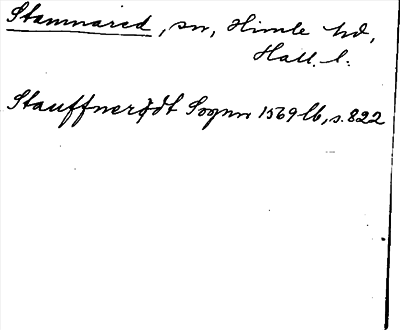 Stamnared, sn, Himle hd,
Hall. l.
Stauffnerødt Sogn 1569 lb, s. 822